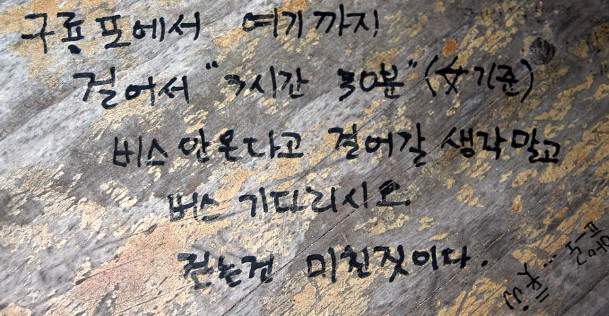 구룡포에서 여기까지
걸어서 "3시간 30분" (女기준)
버스 안온다고 걸어갈 생각말고
버스 기다리시오.
걷는건 미친짓이다.